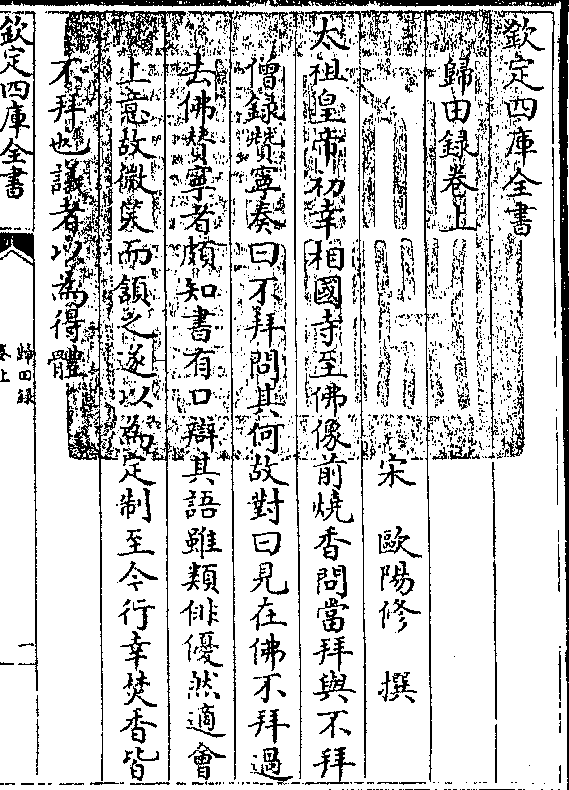 欽定四庫全書
歸田録卷上
宋　歐陽修　撰
太祖皇帝初幸相國寺至佛像前燒香問當拜與不拜
僧録賛寧奏曰不拜問其何故對曰見在佛不拜過
去佛賛寧者頗知書有口辯其語雖類俳優然適會
上意故微笑而頷之遂以為定制至今行幸焚香皆
不拜也議者以為得體
欽定四庫全書
歸田録
卷上
一